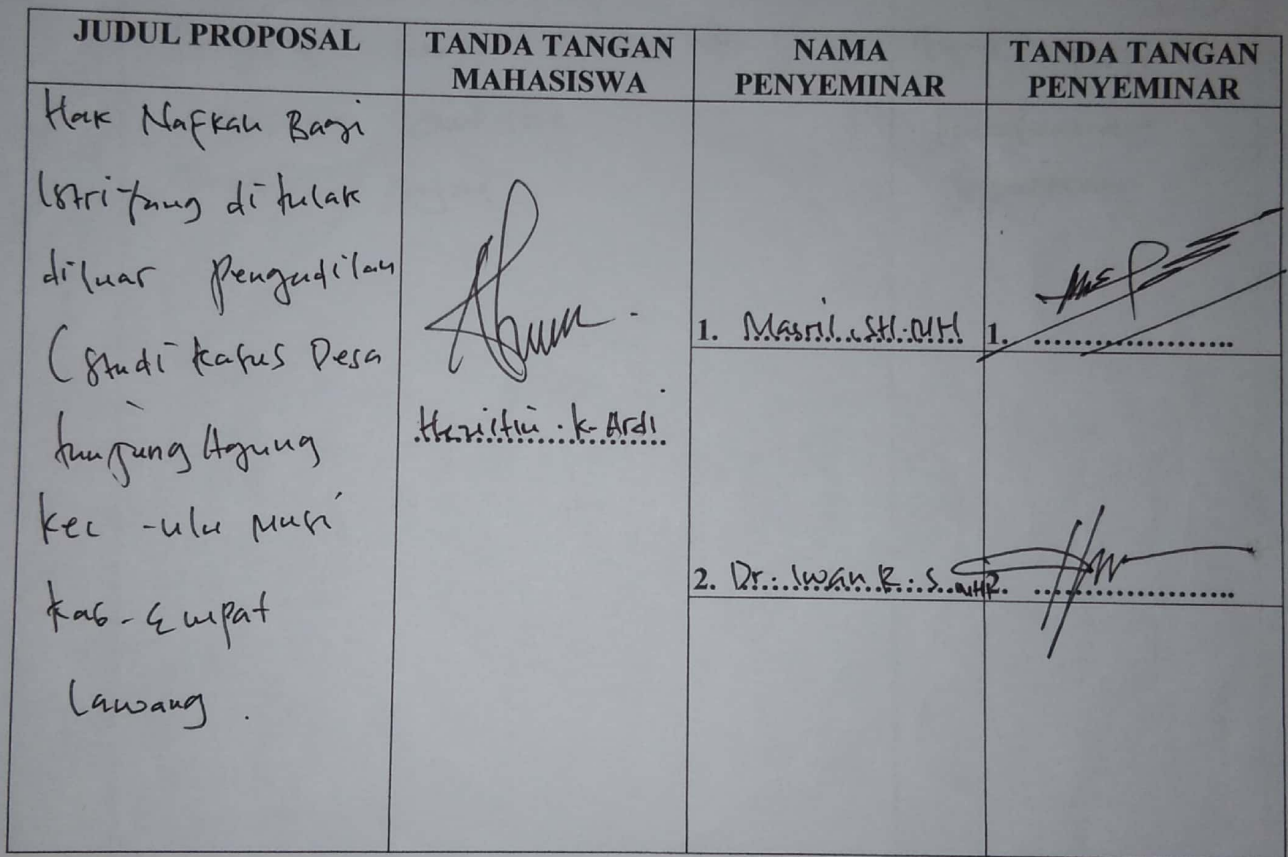 JUDUL PROPOSAL
TANDA TANGAN
MAHASISWA
NAMA
PENYEMINAR
TANDA TANGAN
PENYEMINAR
Hak Nafkah Bagi
Istri yang di tulak
diluar Pengadilan
(Studi kasus Desa
tunjung Agung
kec - ulu Musi
kab - Empat
Lawang .
K. Ardi
1. Masril, SH. MH
1. ....................
2. Dr. Iwan R. S. MH
2. ....................